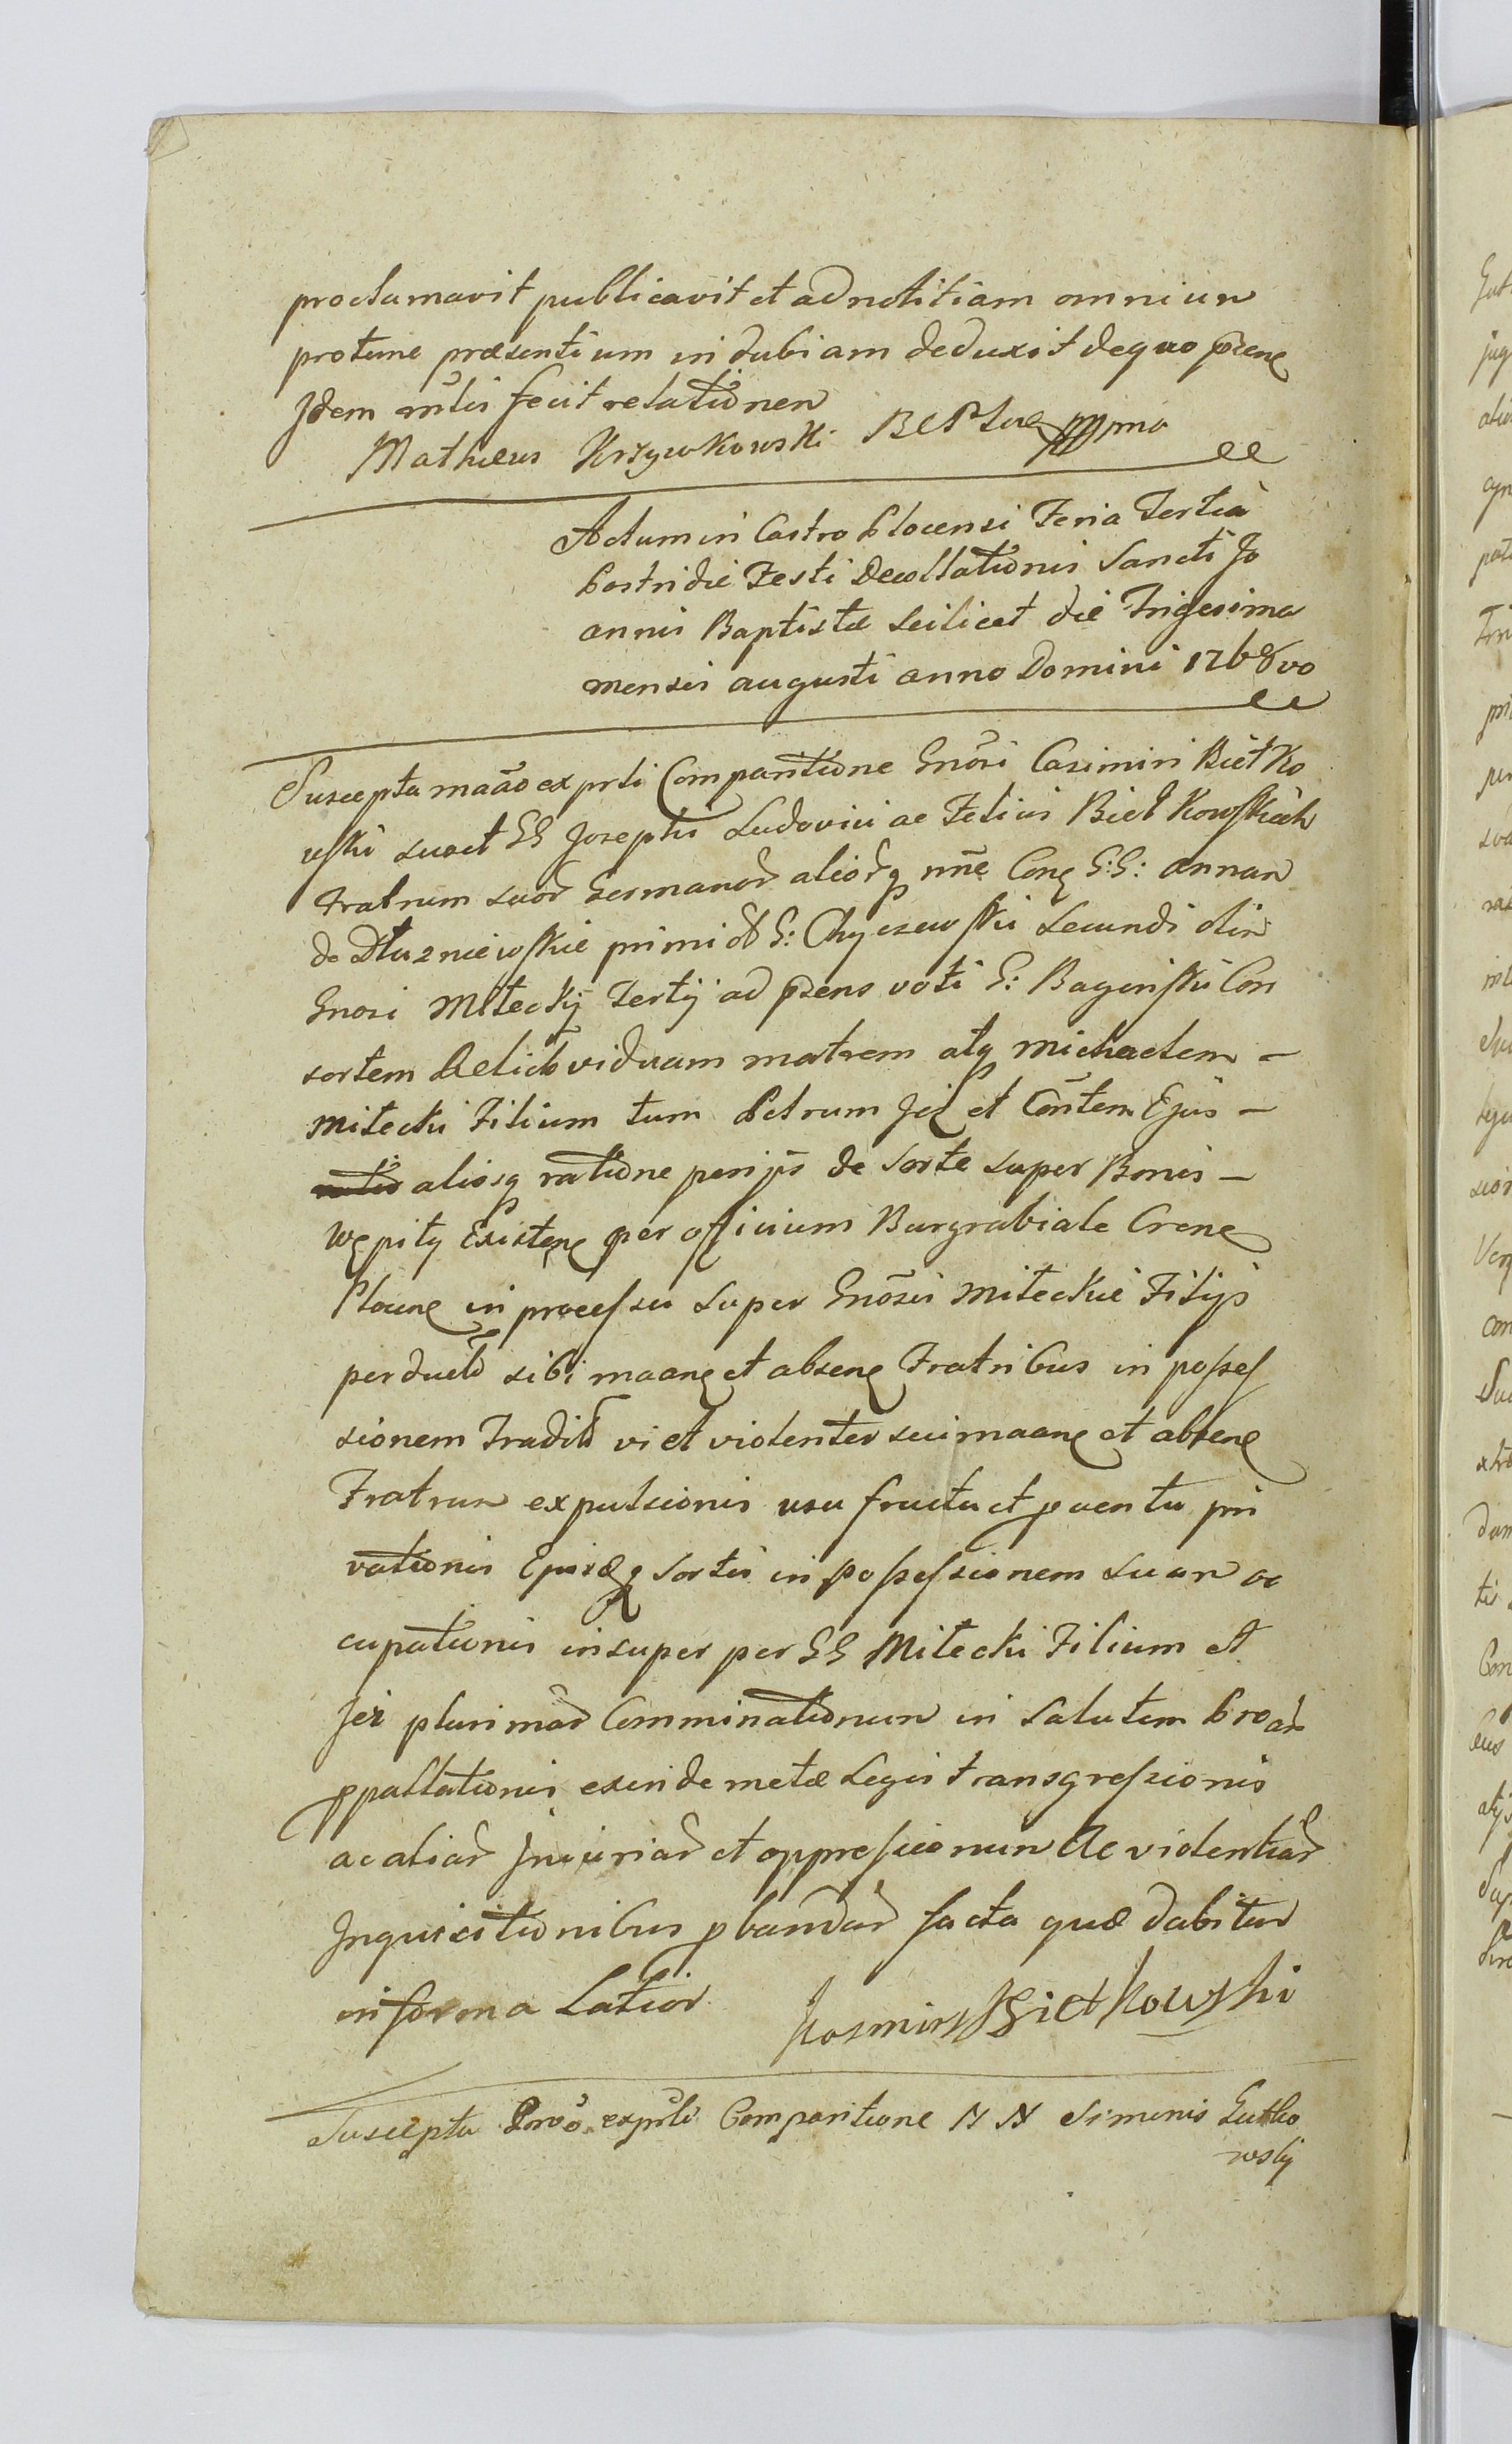 proclamavit publicavit et ad notitiam omnium
protunc præsentium indubiam deduxit de quo præns
Jdem mlis fecit relationem
Matheus Krzywkowski
Actum in Castro Plocensi Feria Tertia
Postridie Festi Decollationis Sancti Jo
annis Baptistæ scilicet die Trigesima
mensis augusti anno Domini 1768vo
Suscepta maão ex prti Comparitione Gnõsi Casimiri Bietko
wski suo et GG Josephi Ludovici ac Felicis Bietkowskich
Fratrum suor Germanor aliorq nñe Conq G:G: annam
de Dłuzniewskie primi G: Chyczewski secundi olim
Gnosi Miteckij Tertij ad præns voti G: Baginski Con
sortem Relictã viduam matrem atq Michaelem –
Mitecki Filium tum Petrum Jez et Cõntem Ejus –
aliosq ratione perijs de sorte super Bonis –
Wępiły Existenę per officium Burgrabiale Crene
Plocene in processu super Gnõsis Miteckie Filijs
perducto sibi maane et absene Fratribus in posses
sionem Tradita vi et violenter sui maane et absene
Fratrum expulsionis usu fructu et pventu pri
vationis Ejusdeq sortis in possessionem suam oc
cupationis insuper per GG Mitecki Filium et
Jez plurimar Comminationum in salutem Proar
ppallationis exinde metæ Legis transgressionis
ac aliar Jniuriar et oppressionum ac violentiar
Jnquisitionibus pbandar facta quæ dabitur
in forma Latior Kazmirz Bietkowski
Suscepta Prvo ex prti Comparitione NN Simonis Gutko
wskij